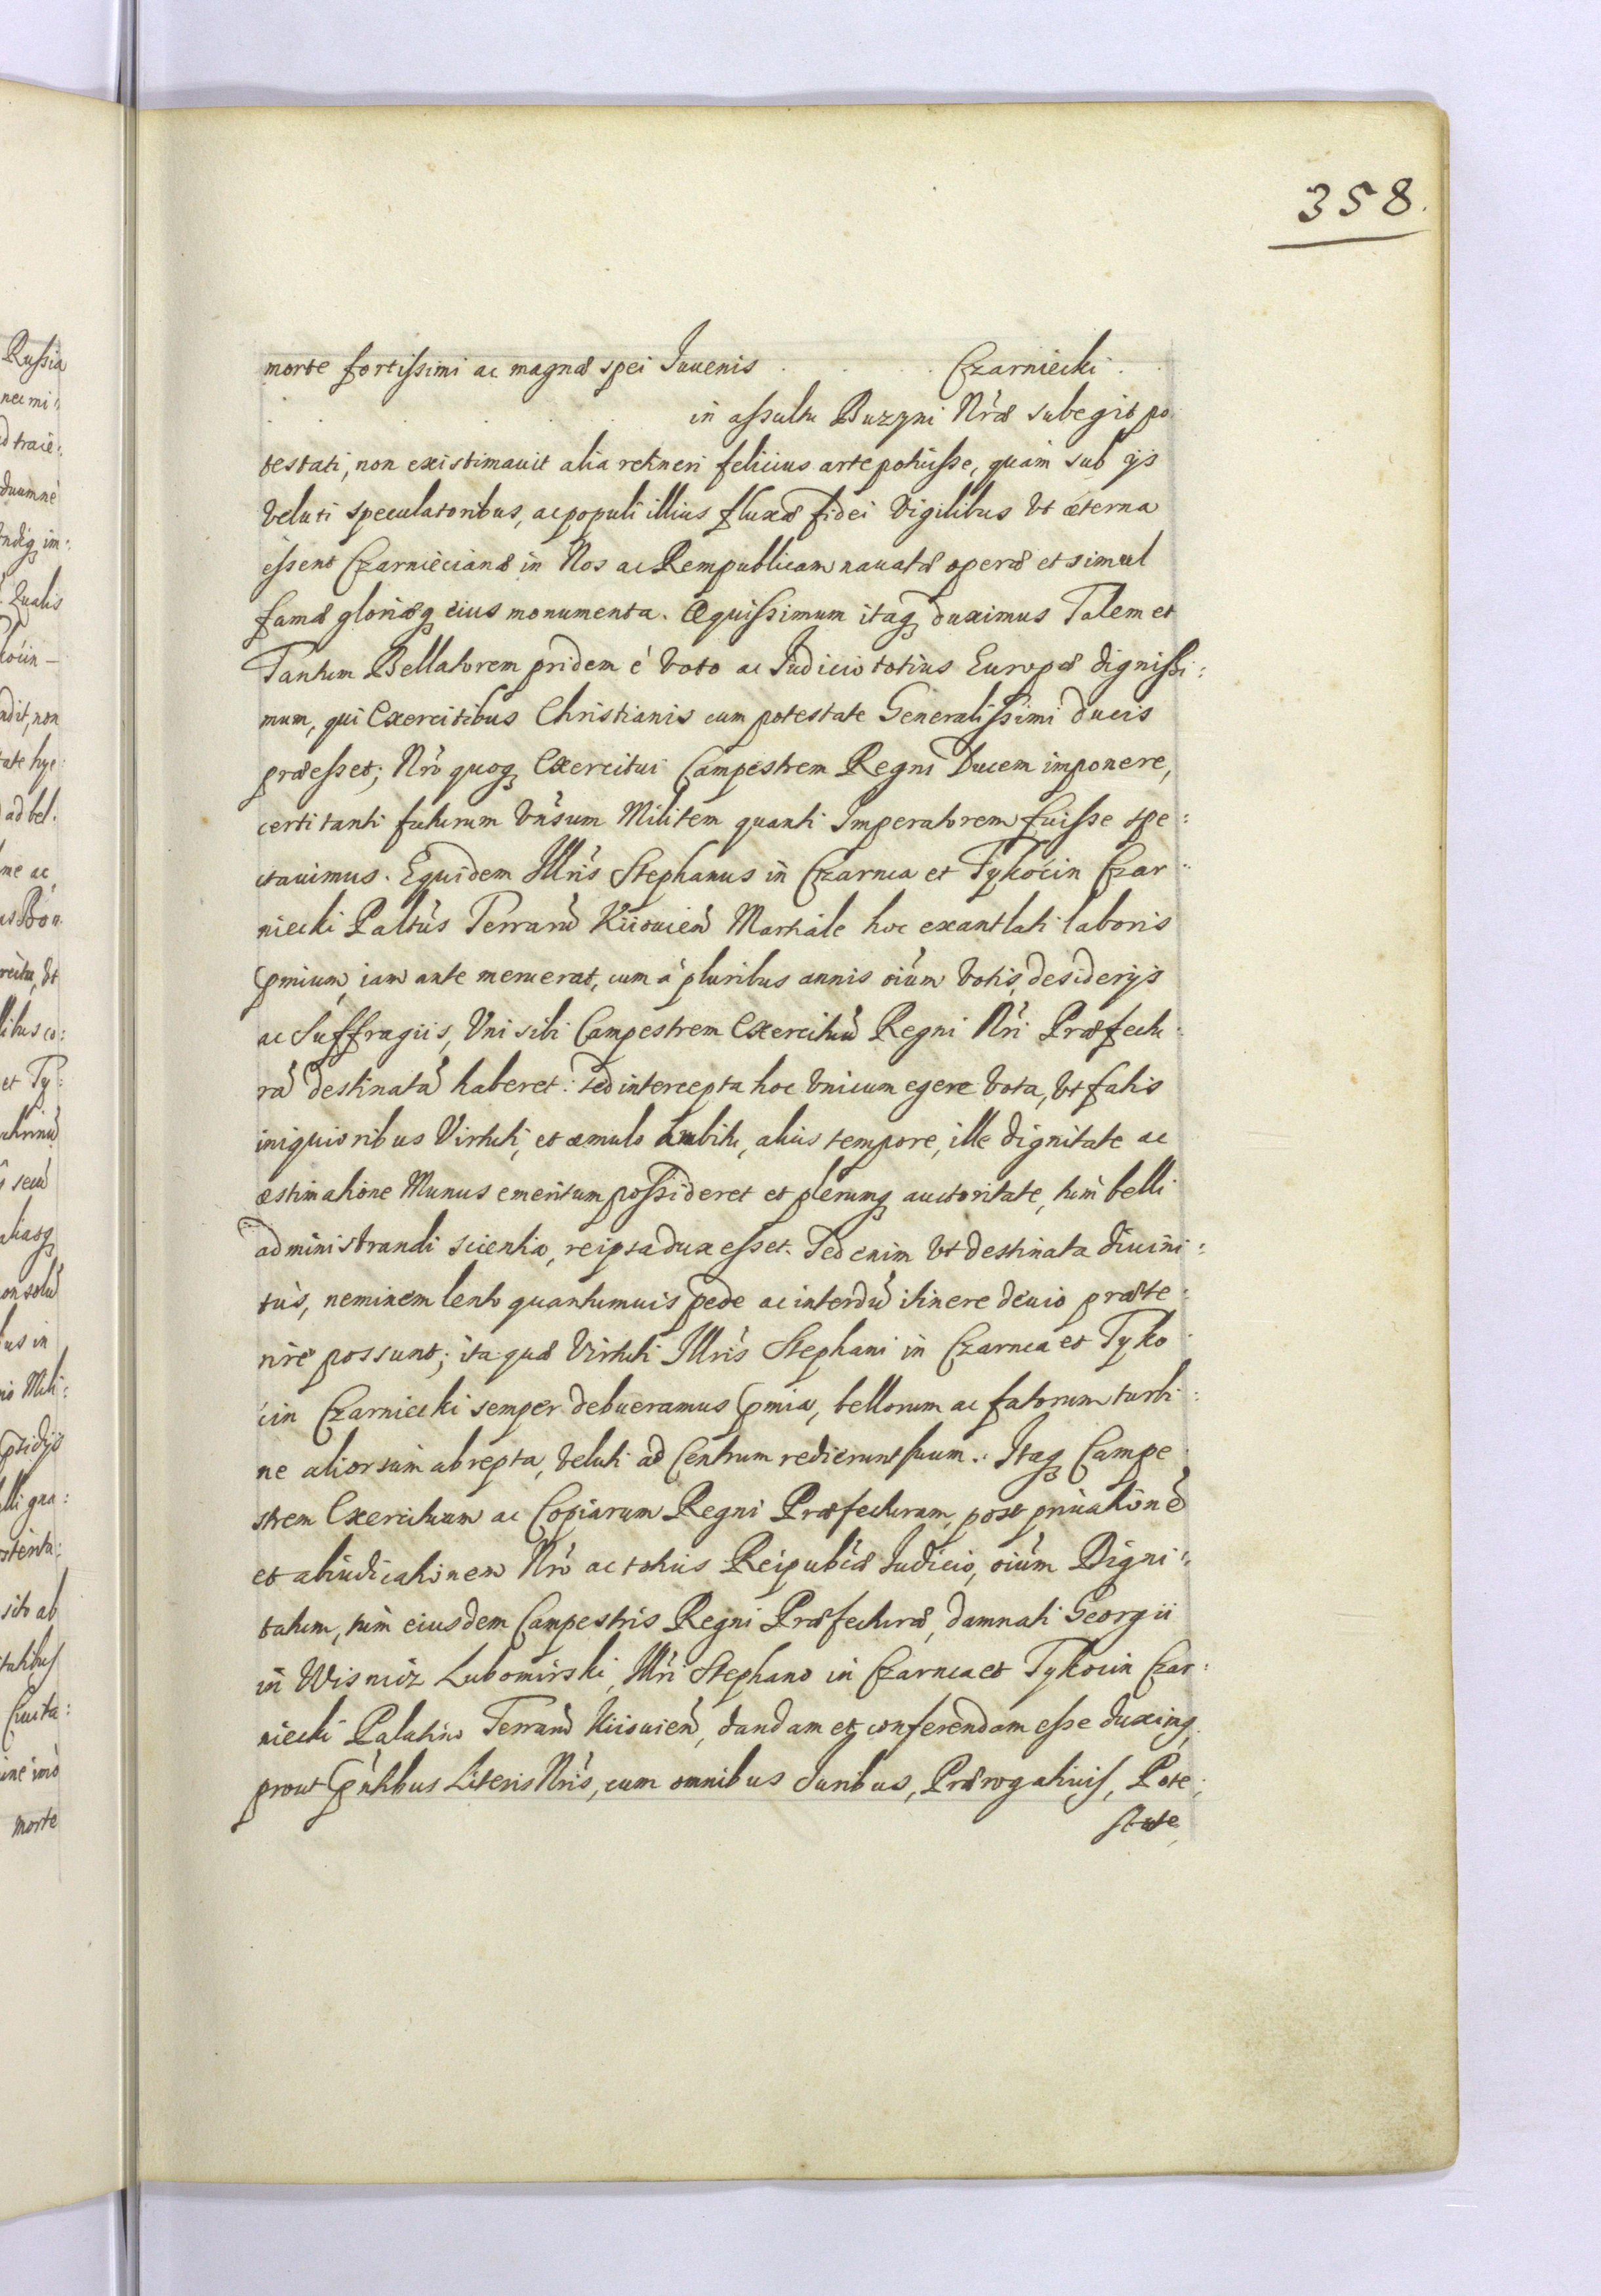 358.
morte fortissimi ac magnæ spei Juuenis . . . Czarniecki . .
. . . . in assultu Buzyni Nr̃æ subegit po
testati, non existimauit alia retineri felicius arte potuisse, quàm sub ijs
veluti speculatoribus, ac populi illius fluxæ fidei Vigilibus Vt æterna
essent Czarniecianæ in Nos ac Rempublicam nauatæ operæ et simul
famæ gloriæq eius monumenta. Æquissimum itaq duximus Talem et
Tantum Bellatorem pridem è voto ac Judicio totius Europæ dignissi:
mum, qui Exercitibus Christianis cum potestate Generalissimi ducis
præesset; Nr̃o quoq Exercitui Campestrem Regni Ducem imponere,
certi tanti futurum Vñsum Militem quanti Imperatorem fuisse spe:
ctauimus. Equidem Illr̃is Stephanus in Czarnca et Tykocin Czar:
niecki Paltũs Terrarũ Kiiouieñ Martiale hoc exantlati laboris
pmium iam ante meruerat, cum à pluribus annis oĩum votis, desiderijs
ac Suffragiis, Vni sibi Campestrem Exercituũ Regni Nr̃i Præfectu:
rã destinatã haberet: sed intercepta hoc vnicum egere vota, Vt fatis
iniquioribus Virtuti, et æmulo ambitu, alius tempore, ille dignitate ac
æstimatione Munus emeritum possideret et plerumq auctoritate, tùm belli
administrandi scientia, reipsa dux esset. Sed enim Vt destinata diuini:
tùs, neminem lento quantumuis pede ac interdũ itinere deuio præte:
rire possunt; ita quæ Virtuti Illr̃is Stephani in Czarnca et Tyko:
cin Czarniecki semper debueramus pmia, bellorum ac fatorum turbi:
ne aliorsùm abrepta, veluti ad Centrum redierunt suum. Itaq Campe
strem Exercituum ac Copiarum Regni Præfecturam, post priuationẽ
et abiudicationem Nr̃o ac totius Reipubl̃æ Judicio, oĩum Digni:
tatum, tùm eiusdem Campestris Regni Præfecturæ, damnati Georgii
in Wisnicz Lubomirski, Illr̃i Stephano in Czarnca et Tykocin Czar:
niecki Palatino Terrarũ Kiiouieñ, dandam et conferendam esse duximq
prout pñtibus Literis Nr̃is, cum omnibus Juribus, Prærogatiuis, Pote:
state
Russia
nec mi:
d traie:
duumne
Qualis
ndit, non
ad bel.
me ac
libus co:
et Ty:
on solũ
us in
sito ab
morte